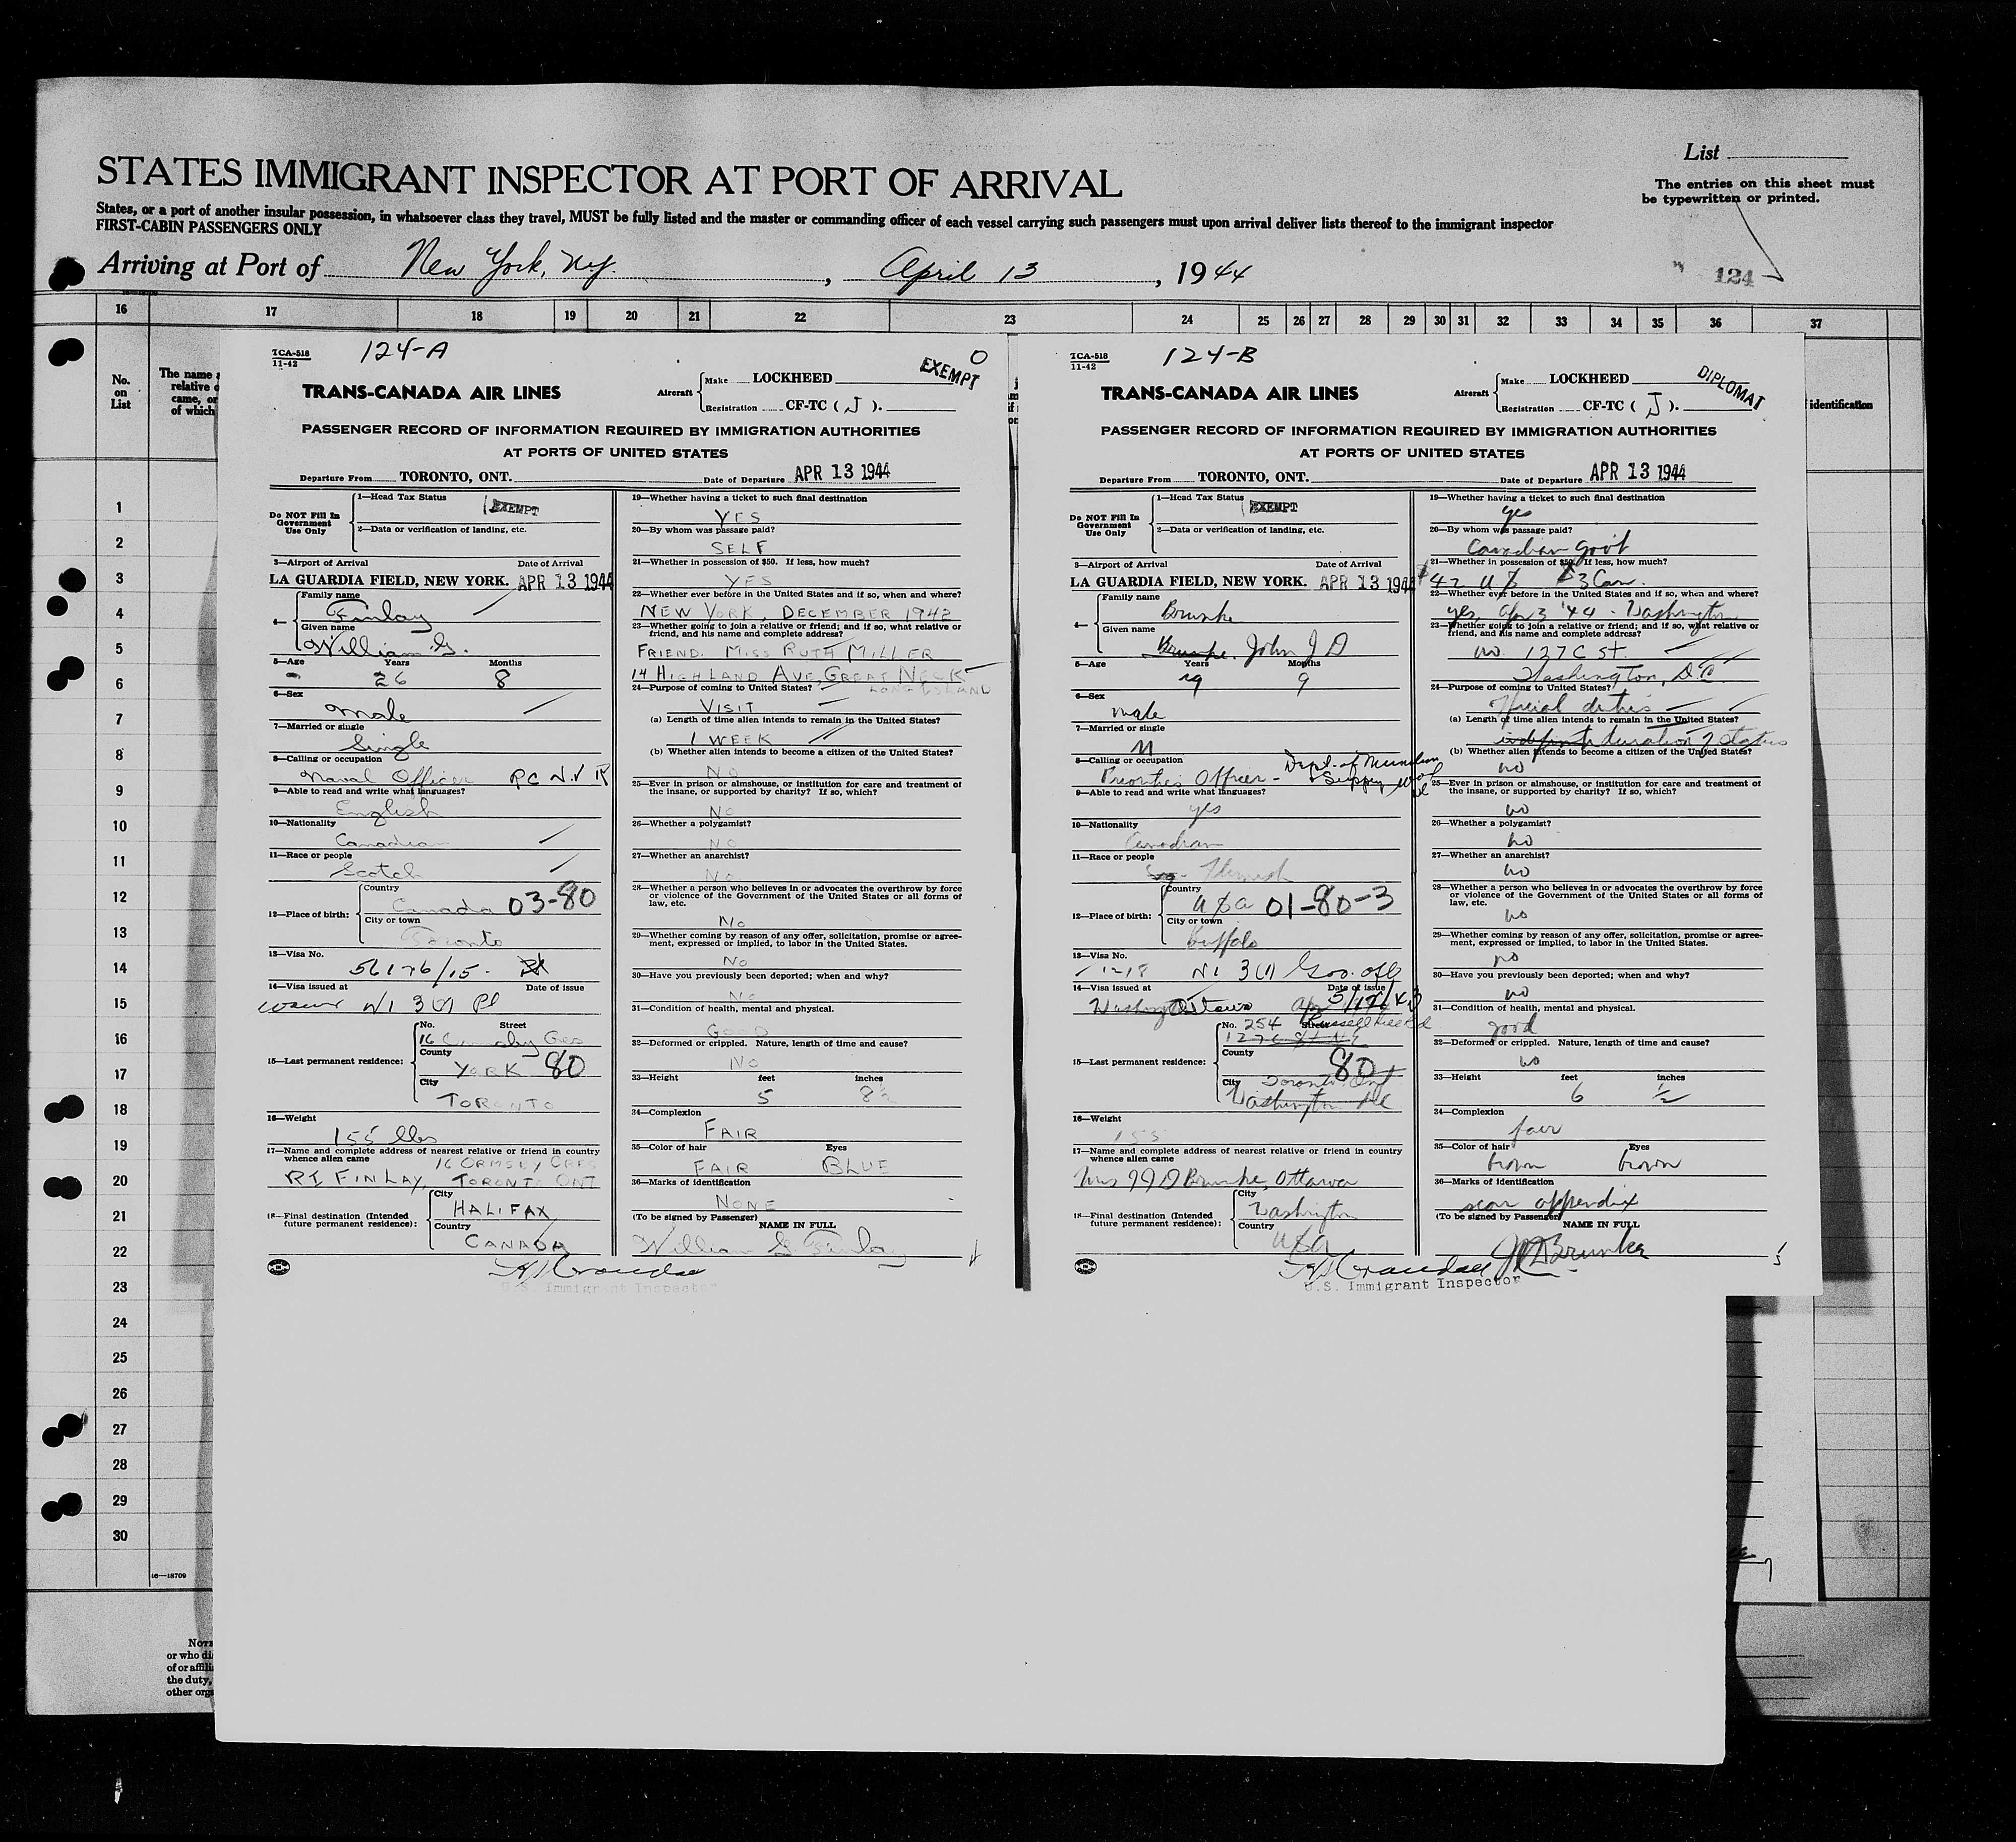 STATES IMMIGRANT INSPECTOR AT PORT OF ARRIVAL
List
The entries on this sheet must
be typewritten or printed.
States, or a port of another insular possession, in whatsoever class they travel, MUST be fully listed and the master or commanding officer of each vessel carrying such passengers must upon arrival deliver lists thereof to the immigrant inspector
FIRST-CABIN PASSENGERS ONLY
Arriving at Port of New York, N.Y., April 13, 1944
124
16 17 18 19 20 21 22 23 24 25 26 27 28 29 30 31 32 33 34 35 36 37
No.
on
List
The name
relative
came, or
of which
identification
1
2
3
4
5
6
7
8
9
10
11
12
13
14
15
16
17
18
19
20
21
22
23
24
25
26
27
28
29
30
16—18709
NOTE
or who di
of or affili
the duty,
other orga
TCA-518
11-42
124-A
O
EXEMPT
TRANS-CANADA AIR LINES
Aircraft
Make LOCKHEED
Registration CF-TC ( J ).
PASSENGER RECORD OF INFORMATION REQUIRED BY IMMIGRATION AUTHORITIES
AT PORTS OF UNITED STATES
Departure From TORONTO, ONT. Date of Departure APR 13 1944
Do NOT Fill In
Government
Use Only
1—Head Tax Status EXEMPT
2—Data or verification of landing, etc.
3—Airport of Arrival Date of Arrival
LA GUARDIA FIELD, NEW YORK. APR 13 1944
4—
Family name
Finlay
Given name
William G.
5—Age Years Months
26 8
6—Sex
Male
7—Married or single
Single
8—Calling or occupation
Naval Officer RCNVR
9—Able to read and write what languages?
English
10—Nationality
Canadian
11—Race or people
Scotch
12—Place of birth:
Country
Canada 03-80
City or town
Toronto
13—Visa No.
56176/15.
14—Visa issued at Date of issue
15—Last permanent residence:
No. Street
16
County
YORK 80
City
TORONTO
16—Weight
155 lbs
17—Name and complete address of nearest relative or friend in country
whence alien came
16 ORMSBY CRES
R I FINLAY, TORONTO ONT
18—Final destination (Intended
future permanent residence):
City
HALIFAX
Country
CANADA
19—Whether having a ticket to such final destination
YES
20—By whom was passage paid?
SELF
21—Whether in possession of $50. If less, how much?
YES
22—Whether ever before in the United States and if so, when and where?
NEW YORK, DECEMBER 1942
23—Whether going to join a relative or friend; and if so, what relative or
friend, and his name and complete address?
FRIEND. MISS RUTH MILLER
14 HIGHLAND AVE, GREAT NECK
LONG ISLAND
24—Purpose of coming to United States?
VISIT
(a) Length of time alien intends to remain in the United States?
1 WEEK
(b) Whether alien intends to become a citizen of the United States?
NO
25—Ever in prison or almshouse, or institution for care and treatment of
the insane, or supported by charity? If so, which?
NO
26—Whether a polygamist?
NO
27—Whether an anarchist?
NO
28—Whether a person who believes in or advocates the overthrow by force
or violence of the Government of the United States or all forms of
law, etc.
NO
29—Whether coming by reason of any offer, solicitation, promise or agree-
ment, expressed or implied, to labor in the United States.
NO
30—Have you previously been deported; when and why?
NO
31—Condition of health, mental and physical.
GOOD
32—Deformed or crippled. Nature, length of time and cause?
NO
33—Height feet inches
5 8½
34—Complexion
FAIR
35—Color of hair Eyes
FAIR BLUE
36—Marks of identification
NONE
(To be signed by Passenger) NAME IN FULL
William G Finlay
U.S. Immigrant Inspector
TCA-518
11-42
124-B
DIPLOMAT
TRANS-CANADA AIR LINES
Aircraft
Make LOCKHEED
Registration CF-TC ( J ).
PASSENGER RECORD OF INFORMATION REQUIRED BY IMMIGRATION AUTHORITIES
AT PORTS OF UNITED STATES
Departure From TORONTO, ONT. Date of Departure APR 13 1944
Do NOT Fill In
Government
Use Only
1—Head Tax Status EXEMPT
2—Data or verification of landing, etc.
3—Airport of Arrival Date of Arrival
LA GUARDIA FIELD, NEW YORK. APR 13 1944
4—
Family name
Brunke
Given name
Brunke, John J D
5—Age Years Months
29 9
6—Sex
male
7—Married or single
M
8—Calling or occupation
Priorities Officer - Dept. of Munitions
& Supply
9—Able to read and write what languages?
yes
10—Nationality
Canadian
11—Race or people
Flemish
12—Place of birth:
Country
USA 01-80-3
City or town
Buffalo
13—Visa No.
1218 N1 3(1) Gov. off
14—Visa issued at Date of issue
Ottawa 5/17/43
15—Last permanent residence:
No. 254 Street Russell Hill Rd
127 C St N.E
County
80
City Toronto, Ont
Washington DC
16—Weight
155
17—Name and complete address of nearest relative or friend in country
whence alien came
Mrs JJD Brunke, Ottawa
18—Final destination (Intended
future permanent residence):
City
Washington
Country
USA
19—Whether having a ticket to such final destination
yes
20—By whom was passage paid?
Canadian Gov't
21—Whether in possession of $50. If less, how much?
$42 US $3 Can.
22—Whether ever before in the United States and if so, when and where?
yes, Apr 3 '44 - Washington
23—Whether going to join a relative or friend; and if so, what relative or
friend, and his name and complete address?
no. 127 C St.
Washington, D.C.
24—Purpose of coming to United States?
Official duties
(a) Length of time alien intends to remain in the United States?
indefinite duration of status
(b) Whether alien intends to become a citizen of the United States?
no
25—Ever in prison or almshouse, or institution for care and treatment of
the insane, or supported by charity? If so, which?
no
26—Whether a polygamist?
no
27—Whether an anarchist?
no
28—Whether a person who believes in or advocates the overthrow by force
or violence of the Government of the United States or all forms of
law, etc.
no
29—Whether coming by reason of any offer, solicitation, promise or agree-
ment, expressed or implied, to labor in the United States.
no
30—Have you previously been deported; when and why?
no
31—Condition of health, mental and physical.
good
32—Deformed or crippled. Nature, length of time and cause?
no
33—Height feet inches
6 ½
34—Complexion
fair
35—Color of hair Eyes
brown brown
36—Marks of identification
scar appendix
(To be signed by Passenger) NAME IN FULL
JJD Brunke
U.S. Immigrant Inspector